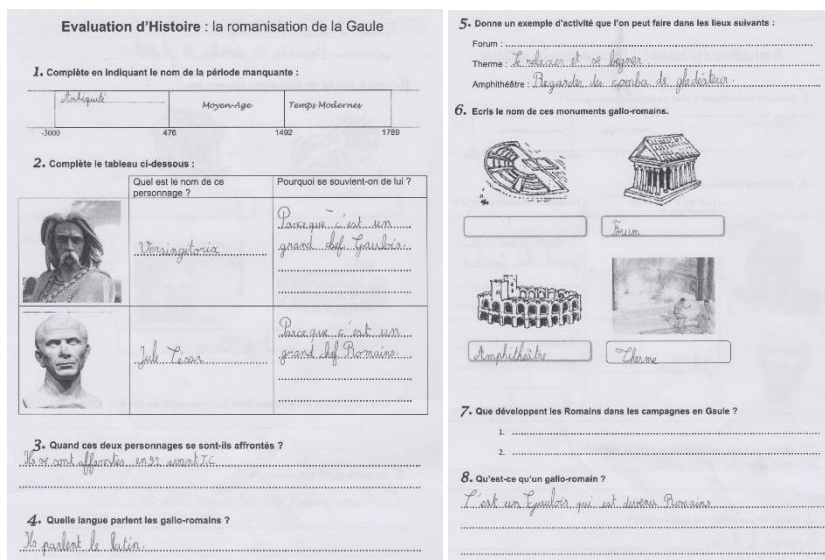 Evaluation d'Histoire : la romanisation de la Gaule
1. Complète en indiquant le nom de la période manquante :
Antiquité
Moyen-Age
Temps Modernes
-3000
476
1492
1789
2. Complète le tableau ci-dessous :
Quel est le nom de ce
personnage ?
Pourquoi se souvient-on de lui ?
Versingitorix
Parceque c'est un
grand chef Gaulois.
Jule César
Parceque c'est un
grand chef Romains.
3. Quand ces deux personnages se sont-ils affrontés ?
Ils se sont affrontés en 52 avant J.C
4. Quelle langue parlent les gallo-romains ?
Ils parlent le latin.
5. Donne un exemple d'activité que l'on peut faire dans les lieux suivants :
Forum :
Therme : Se relaxer et se begner
Amphithéâtre : Regarder des comba de gladiateur.
6. Ecris le nom de ces monuments gallo-romains.
Forum
Amphithéâtre
Therme
7. Que développent les Romains dans les campagnes en Gaule ?
1.
2.
8. Qu'est-ce qu'un gallo-romain ?
C'est un Gaulois qui est devenu Romains.